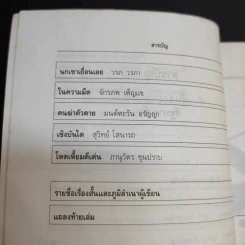 สารบัญ
นกเขาเถื่อนเอย วาภ วรภา
ในความมืด จักรภพ เพ็ญแข
คนฆ่าตัวตาย มนต์ตะวัน
เชิงบันได สุวิทย์ โสนารถ
โหดเหี้ยมดีเด่น ภานุวัตร ขุนปราบ
รายชื่อเรื่องสั้นและภูมิลำเนาผู้เขียน
แถลงท้ายเล่ม